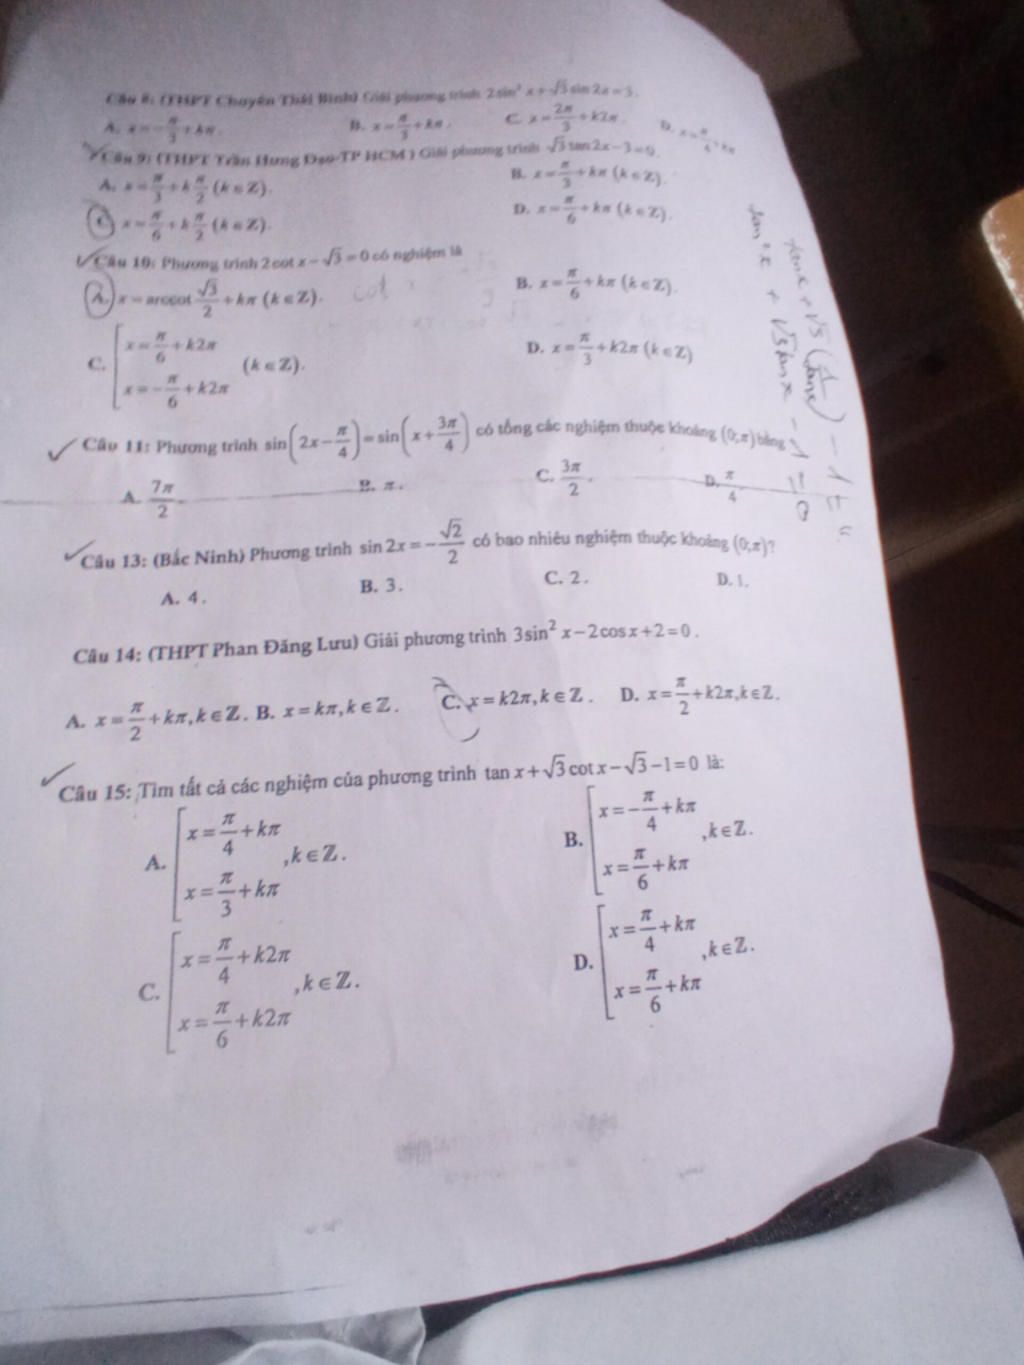 Câu 8: (THPT Chuyên Thái Bình) Giải phương trình 2sin² x + √3 sin 2x = 3.
A. x = -π/3 + kπ. B. x = π/3 + kπ. C. x = 2π/3 + k2π. D. x = π/4 + kπ
Câu 9: (THPT Trần Hưng Đạo-TP HCM ) Giải phương trình √3 tan 2x - 3 = 0.
A. x = π/3 + k π/2 (k ∈ Z). B. x = π/3 + kπ (k ∈ Z).
C. x = π/6 + k π/2 (k ∈ Z). D. x = π/6 + kπ (k ∈ Z).
Câu 10: Phương trình 2cot x - √3 = 0 có nghiệm là
A. x = arccot √3/2 + kπ (k ∈ Z). cot x B. x = π/6 + kπ (k ∈ Z).
C. [ x = π/6 + k2π
x = -π/6 + k2π (k ∈ Z). D. x = π/3 + k2π (k ∈ Z)
tanx + √3 (1/tanx) - 1 =
tan²x + √3 tanx - 1 = 0
Câu 11: Phương trình sin(2x - π/4) = sin(x + 3π/4) có tổng các nghiệm thuộc khoảng (0;π) bằng
A. 7π/2. B. π. C. 3π/2. D. π/4
Câu 13: (Bắc Ninh) Phương trình sin 2x = -√2/2 có bao nhiêu nghiệm thuộc khoảng (0;π)?
A. 4. B. 3. C. 2. D. 1.
Câu 14: (THPT Phan Đăng Lưu) Giải phương trình 3sin² x - 2cos x + 2 = 0.
A. x = π/2 + kπ, k ∈ Z. B. x = kπ, k ∈ Z. C. x = k2π, k ∈ Z. D. x = π/2 + k2π, k ∈ Z.
Câu 15: Tìm tất cả các nghiệm của phương trình tan x + √3 cot x - √3 - 1 = 0 là:
A. [ x = π/4 + kπ
x = π/3 + kπ , k ∈ Z. B. [ x = -π/4 + kπ
x = π/6 + kπ , k ∈ Z.
C. [ x = π/4 + k2π
x = π/6 + k2π , k ∈ Z. D. [ x = π/4 + kπ
x = π/6 + kπ , k ∈ Z.